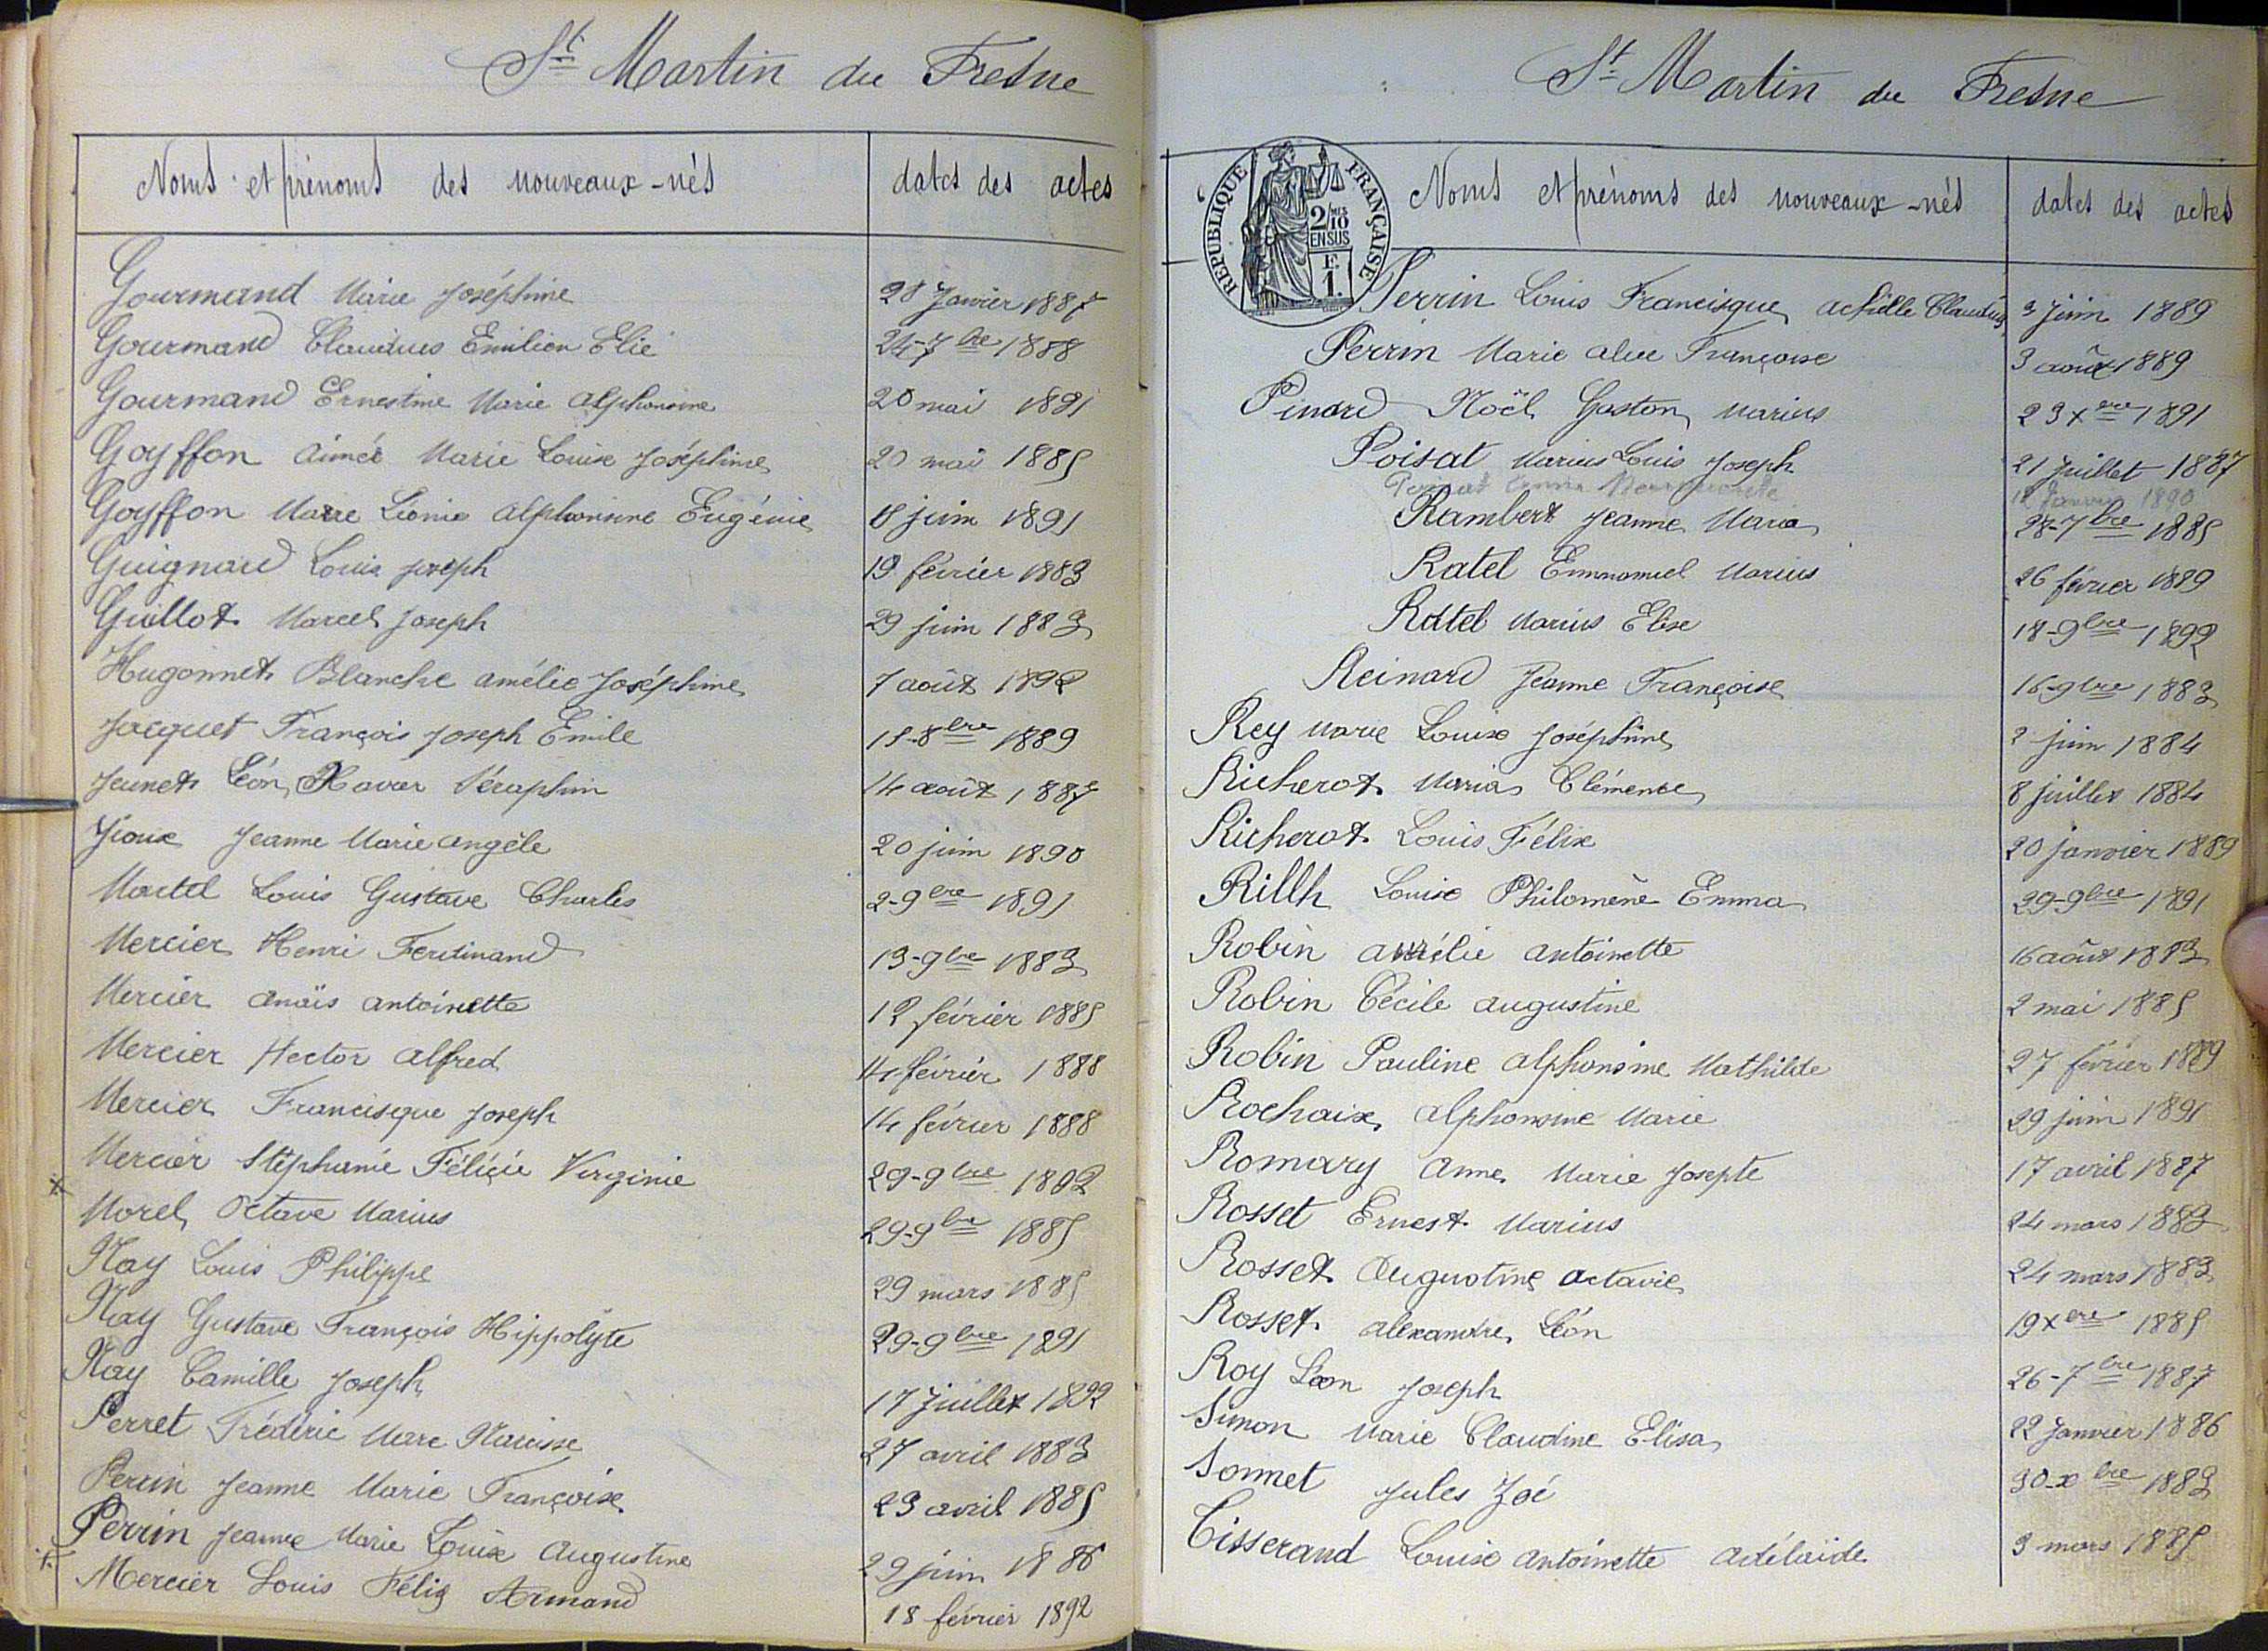 St Martin du Fresne
Noms et prénoms des nouveaux-nés dates des actes
Gourmand Marie Joséphine 28 Janvier 1887
Gourmand Claudius Emilien Elie 24-7bre 1888
Gourmand Ernestine Marie Alphonsine 20 mai 1891
Goyffon Aimée Marie Louise Joséphine 20 mai 1885
Goyffon Marie Léonie Alphonsine Eugénie 8 juin 1891
Guignard Louis Joseph 19 février 1883
Guillot Marcel Joseph 29 juin 1883
Hugonnet Blanche Amélie Joséphine 7 août 1892
Jacquet François Joseph Emile 15-8bre 1889
Jeunet Léon Xavier Séraphin 14 août 1887
Jioux Jeanne Marie Angèle 20 juin 1890
Martel Louis Gustave Charles 2-9bre 1891
Mercier Henri Ferdinand 13-9bre 1883
Mercier Anaïs Antoinette 12 février 1885
Mercier Hector Alfred 14 février 1888
Mercier Francisque Joseph 14 février 1888
Mercier Stéphanie Félicie Virginie 29-9bre 1892
Morel Octave Marius 29-9bre 1885
Nay Louis Philippe 29 mars 1885
Nay Gustave François Hippolyte 29-9bre 1891
Nay Camille Joseph 17 juillet 1892
Perret Frédéric Marc Narcisse 27 avril 1883
Perrin Jeanne Marie Françoise 23 avril 1885
Perrin Jeanne Marie Louise Augustine 29 juin 1886
Mercier Louis Félix Armand 18 février 1892
St Martin du Fresne
REPUBLIQUE FRANÇAISE
2/10MES
EN SUS
F.
1.
Noms et prénoms des nouveaux-nés dates des actes
Perrin Louis Francisque Achille Claudius 3 juin 1889
Perrin Marie Alice Françoise 3 août 1889
Pinard Noël Gaston Marius 23 xbre 1891
Poisat Marius Louis Joseph 21 Juillet 1887
Janvier 1890
Rambert Jeanne Maria 28-7bre 1885
Ratel Emmanuel Marius 26 février 1889
Ratel Marius Elise 18-9bre 1892
Reinard Jeanne Françoise 16-9bre 1883
Rey Marie Louise Joséphine 2 juin 1884
Richerot Maria Clémence 8 juillet 1884
Richerot Louis Félix 20 janvier 1889
Rillh Louise Philomène Emma 29-9bre 1891
Robin Aurélie Antoinette 16 août 1883
Robin Cécile Augustine 2 mai 1885
Robin Pauline Alphonsine Mathilde 27 février 1889
Rochaix Alphonsine Marie 29 juin 1891
Romary Anne Marie Josepte 17 avril 1887
Rosset Ernest Marius 24 mars 1883
Rosset Augustine Octavie 24 mars 1883
Rosset Alexandre Léon 19 xbre 1885
Roy Léon Joseph 26-7bre 1887
Simon Marie Claudine Elisa 22 Janvier 1886
Sonnet Jules Zoé 30-xbre 1883
Tisserand Louise Antoinette Adélaïde 3 mars 1885